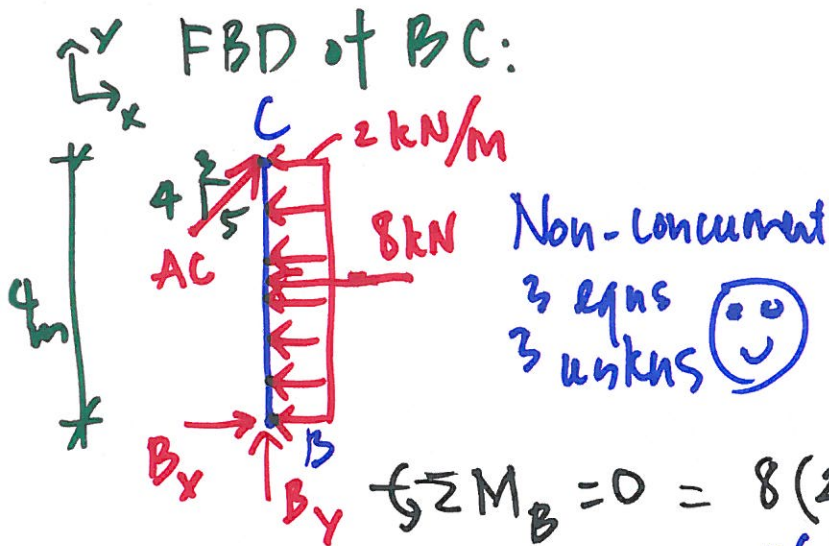 Y
X
FBD of BC:
C
2 kN/m
3
4
5
AC
8kN
4m
Non-concurrent
3 eqns
3 unkns
B
Bx
By
ΣM_B = 0 = 8(2